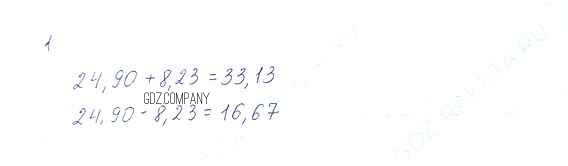 1
24,90 + 8,23 = 33,13
GDZ.COMPANY
24,90 - 8,23 = 16,67